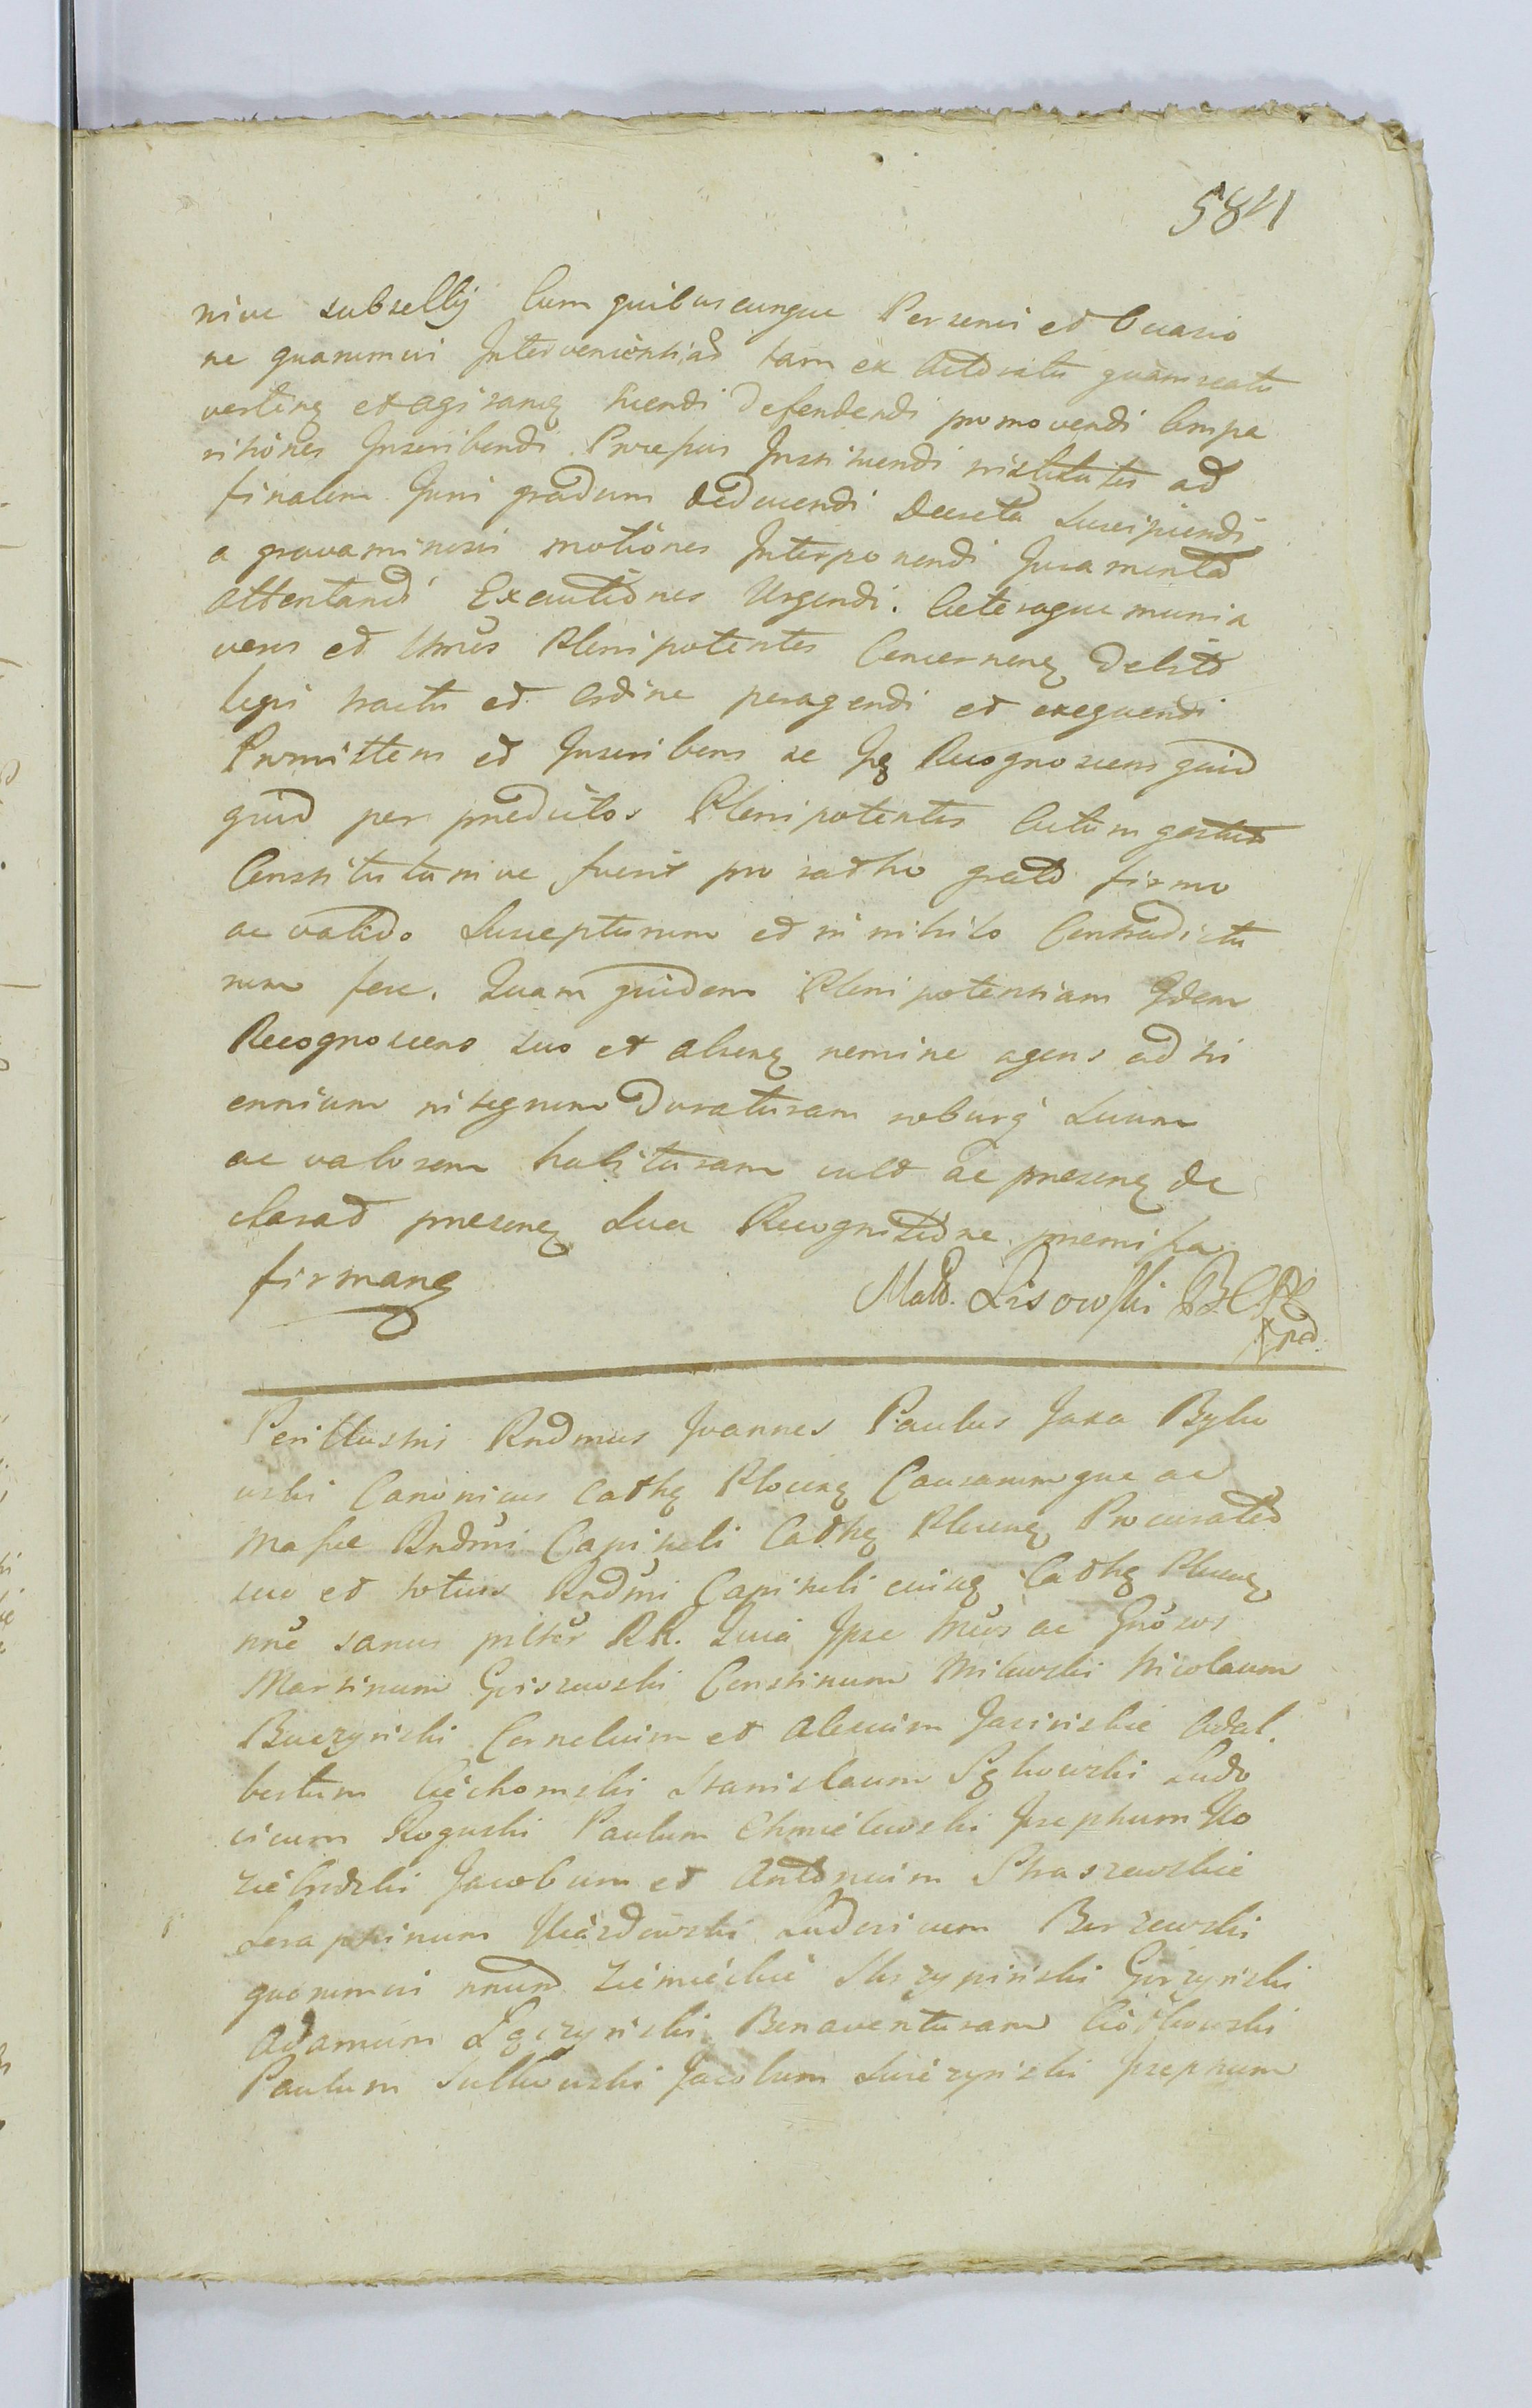 584
nive subsellij Cum quibuscunque Personis et Occasio
ne quarumvis Intervenientiad tam ex Actoratu quam reatu
vertinę et agitanę tuendi defendendi promovendi Compa
ritiones Inscribendi Processus Instituendi institutos ad
finalem Juris gradum deducendi Decreta Suscipiendi
a gravaminosis motiones Interponendi Juramenta
attentandi Executiones Urgendi. Caeteraque munia
veros et Pleni potentes Concernenę Debito
legis tractu et Ordine peragendi et exequendi
Promittens et Inscribens se Recognoscens quid
quid per praedictos Pleni potentes Actum gestum
Constitutumve fuerit pro ratho grato firmo
ac valido Suscepturum et in nihilo Contradictu
rum fore. Quam quidem Pleni potentiam Idem
Recognoscens suo et alienę nemine agens ad tri
ennium integrum duraturam roburq suum
ac valorem habituram vult ac praesenę de
clarat praesenę Sua Recognitione praemissa
firmanę
Math. Lisowski
Perillustris Rndmus Joannes Paulus Jaxa Byko
wski Canonicus Cathę Plocenę Causarumque ac
Massae Rndmi Capituli Cathę Plocenę Procurator
suo et totius Rndmi Capituli eiusę Cathę Plocenę
nne sanus RR. Quia Ipse Mcos ac Gnosos
Martinum Griszewski Constinum Milewski Nicolaum
Buczynski Cornelium et Alexium Jasinskie Adal.
bertum Ciechomski Stanislaum Ludo
vicum Roguski Paulum Chmielewski Josephum Ko
ziebrodzki Jacobum et Antonium Straszewskie
Seraphinum Ludovicum Borzewski
quorumvis nnum Ziemieckie Skrzypinski Gorzynski
Adamum Łęczynski Bonaventuram Ciołkowski
Paulum Sulkowski Jacobum Josephum